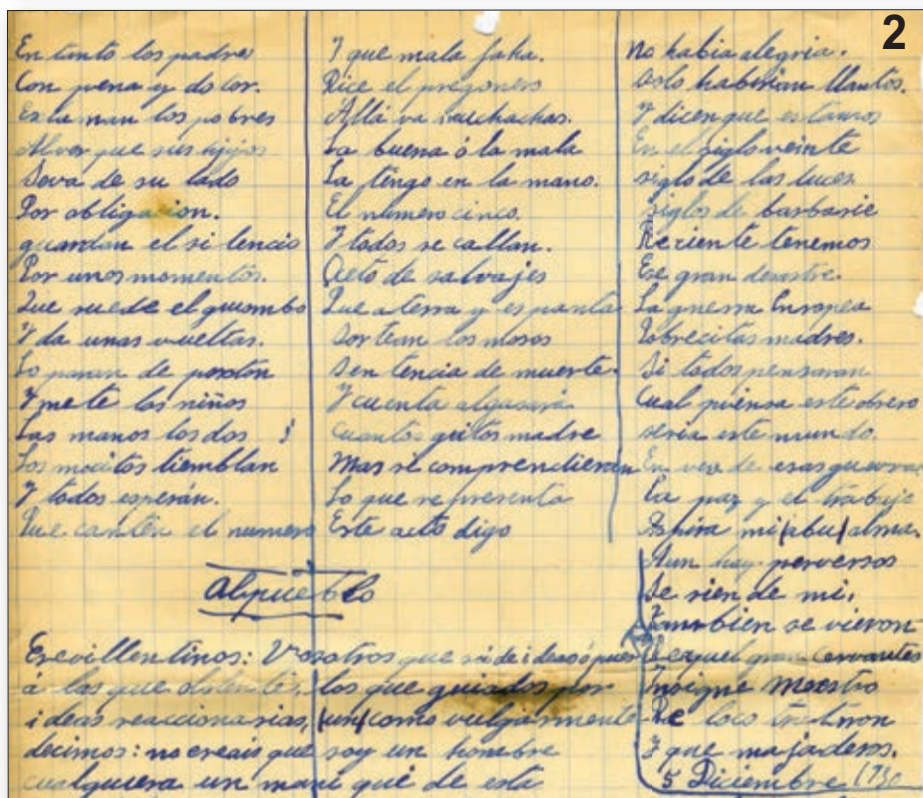 2
En tanto los padres
Con pena y dolor.
Exlaman los pobres
Al ver que sus hijos
Se va de su lado
Por obligacion.
guardan el si lencio
Por unos momentos.
Que ruede el gurombo
Y da unas vueltas.
Lo paran de
Y mete los niños
Las manos los dos
Los mocitos tiemblan
Y todos esperán.
Que canten el numero
Y que mala faha.
Dice el pregonero
Allá va muchachas.
La buena ó la mala
La tengo en la mano.
El numero cinco.
Y todos se callan.
Acto de salvajes
Que aterra y es panta
Sortean los mosos
Sen tencia de muerte.
Y cuenta algasara
Cuantos gritos madre
Mas si comprendieran
Lo que representa
Este acto digo
No habia alegria.
Solo haberian llantos.
Y dicen que estamos
En el siglo veinte
siglo de las luces
siglos de barbarie
Reciente tenemos
Ese gran desastre.
La guerra Europea
Pobrecitas madres.
Si todos pensaran
Cual piensa este obrero
seria este mundo.
En vez de esas guerras
La paz y el trabajo
Aspira mi (abu) alma.
Aun hay perversos
Se rien de mi,
Tambien se vieron
De aquel gran Cervantes
Insigne Maestro
De loco
Y que majaderos.
5 Diciembre 1930
Al pueblo
Crevillentinos: Vosotros que
á las que los que guiados por
ideas reaccionarias, (un) como vulgarmente
decimos: no creais que soy un hombre
cualquiera un mani qui de esta